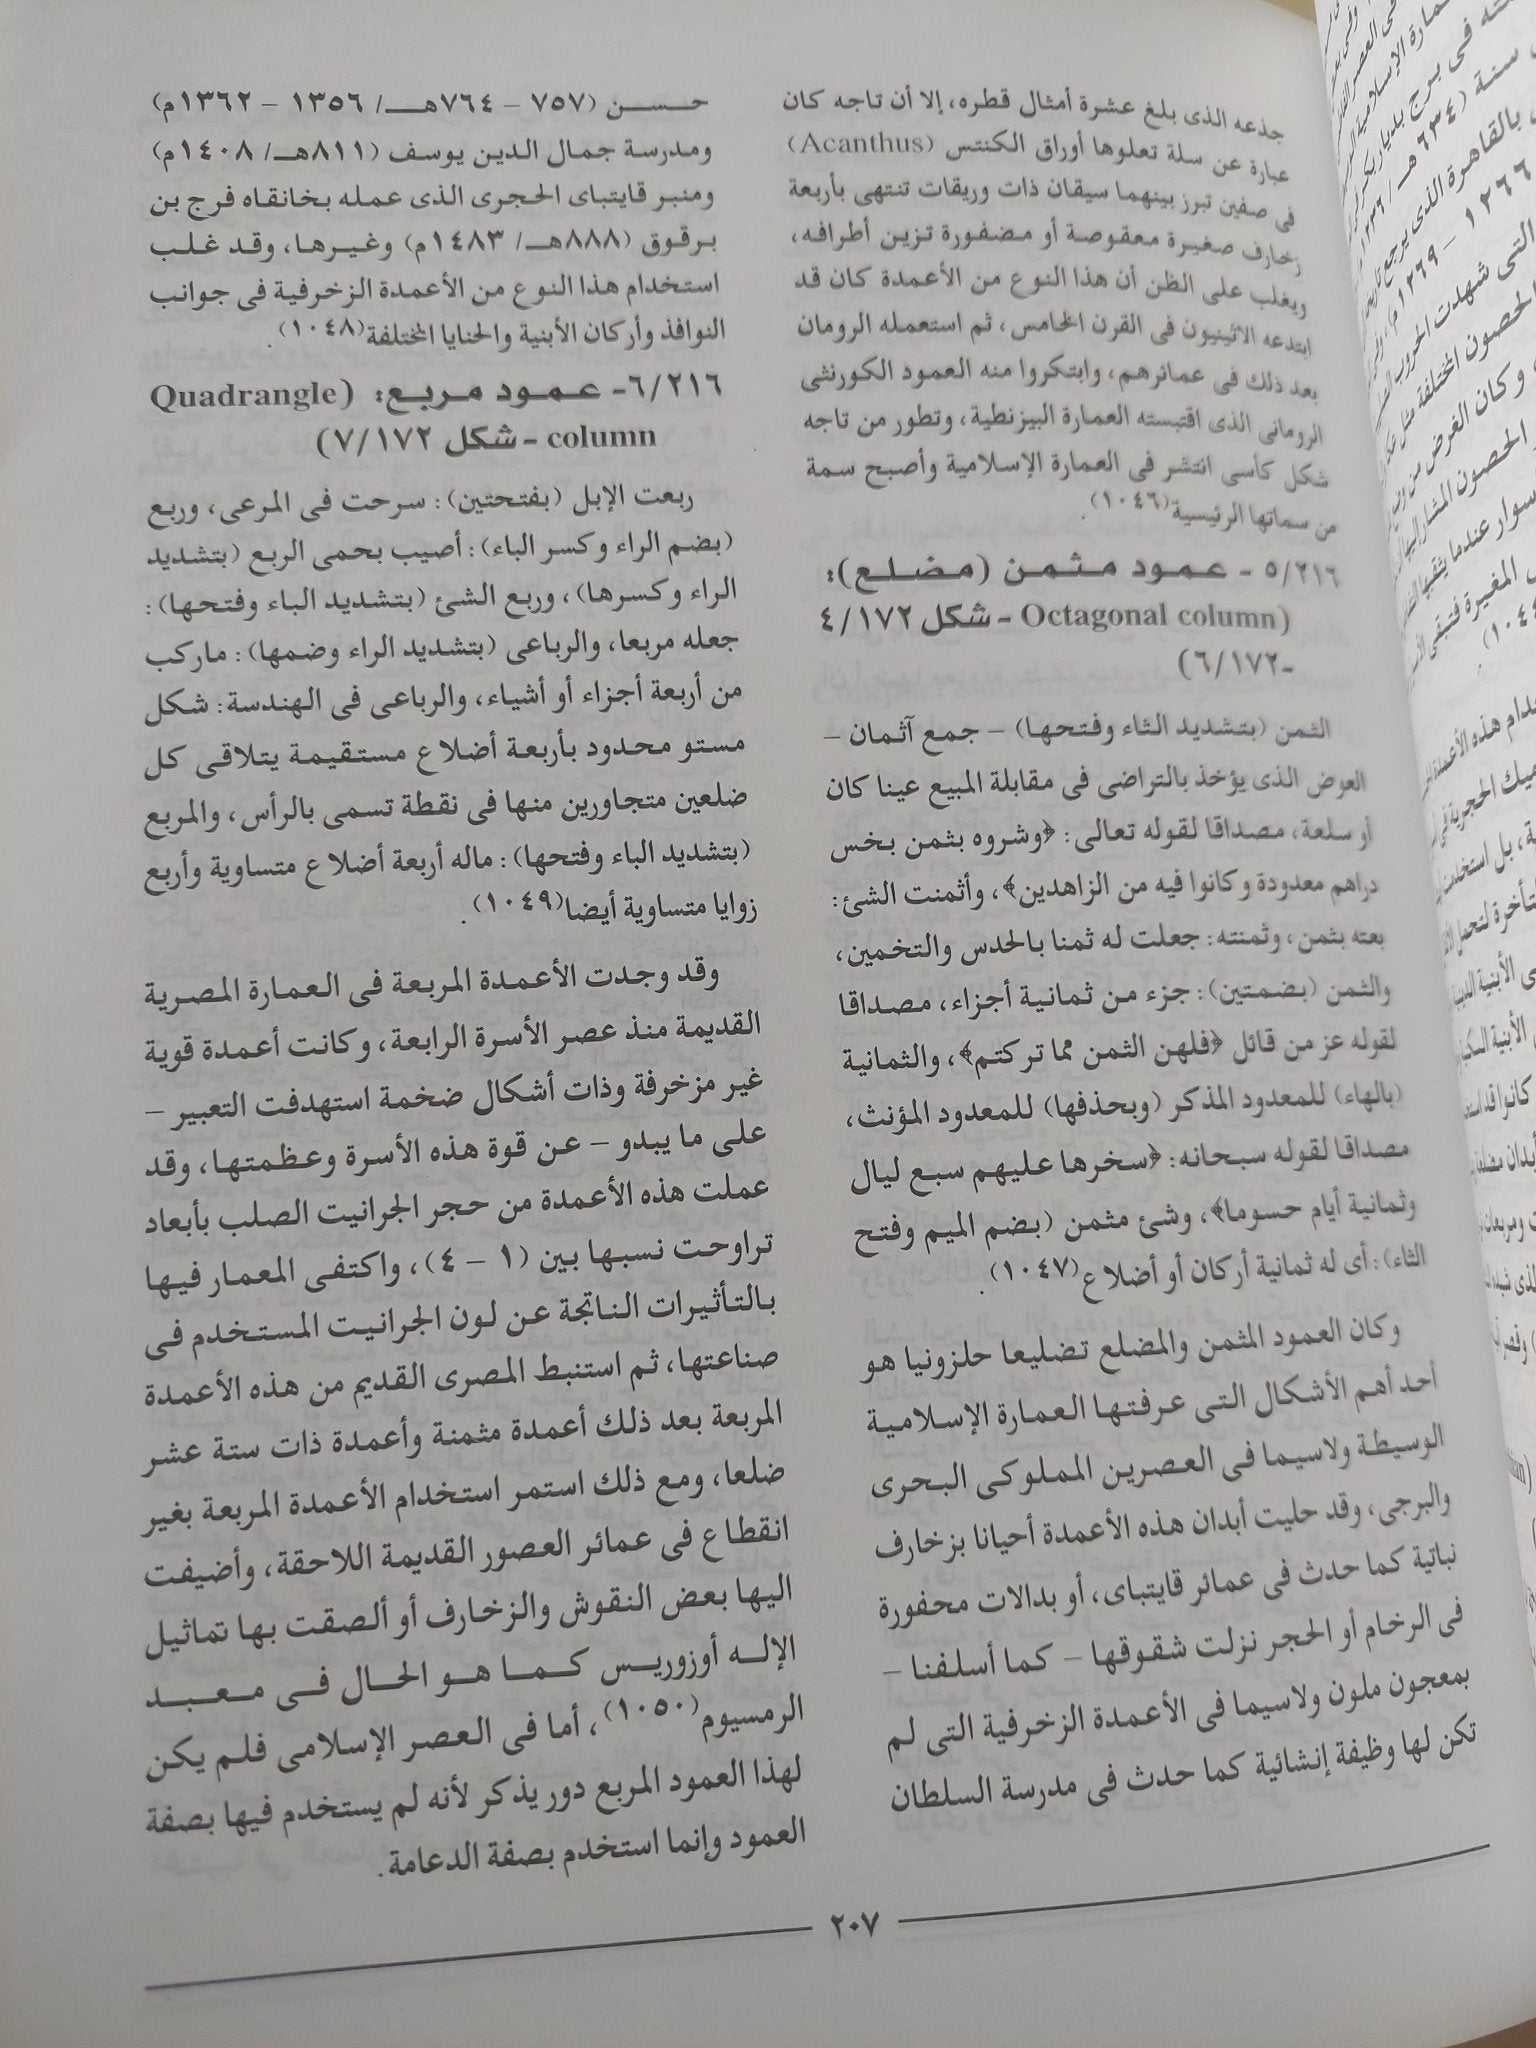 جذعه الذى بلغ عشرة أمثال قطره، إلا أن تاجه كان
عبارة عن سلة تعلوها أوراق الكنتس (Acanthus)
فى صفين تبرز بينهما سيقان ذات وريقات تنتهى بأربعة
زخارف صغيرة معقوصة أو مضفورة تزين أطرافه،
ويغلب على الظن أن هذا النوع من الأعمدة كان قد
ابتدعه الاثينيون فى القرن الخامس، ثم استعمله الرومان
بعد ذلك فى عمائرهم، وابتكروا منه العمود الكورنثى
الرومانى الذى اقتبسته العمارة البيزنطية، وتطور من تاجه
شكل كأسى انتشر فى العمارة الإسلامية وأصبح سمة
من سماتها الرئيسية(١٠٤٦).
٥/٢١٦ - عمود مثمن (مضلع):
(Octagonal column - شكل ٤/١٧٢
-٦/١٧٢)
الثمن (بتشديد الثاء وفتحها) - جمع آثمان -
العوض الذى يؤخذ بالتراضى فى مقابلة المبيع عينا كان
أو سلعة، مصداقا لقوله تعالى: ﴿وشروه بثمن بخس
دراهم معدودة وكانوا فيه من الزاهدين﴾، وأثمنت الشئ:
بعته بثمن، وثمنته: جعلت له ثمنا بالحدس والتخمين،
والثمن (بضمتين): جزء من ثمانية أجزاء، مصداقا
لقوله عز من قائل ﴿فلهن الثمن مما تركتم﴾، والثمانية
(بالهاء) للمعدود المذكر (وبحذفها) للمعدود المؤنث،
مصداقا لقوله سبحانه: ﴿سخرها عليهم سبع ليال
وثمانية أيام حسوما﴾، وشئ مثمن (بضم الميم وفتح
الثاء): أى له ثمانية أركان أو أضلاع(١٠٤٧).
وكان العمود المثمن والمضلع تضليعا حلزونيا هو
أحد أهم الأشكال التى عرفتها العمارة الإسلامية
الوسيطة ولاسيما فى العصرين المملوكى البحرى
والبرجى، وقد حليت أبدان هذه الأعمدة أحيانا بزخارف
نباتية كما حدث فى عمائر قايتباى، أو بدالات محفورة
فى الرخام أو الحجر نزلت شقوقها - كما أسلفنا -
بمعجون ملون ولاسيما فى الأعمدة الزخرفية التى لم
تكن لها وظيفة إنشائية كما حدث فى مدرسة السلطان
حسن (٧٥٧ - ٧٦٤هـ/ ١٣٥٦ - ١٣٦٢م)
ومدرسة جمال الدين يوسف (٨١١هـ/ ١٤٠٨م)
ومنبر قايتباى الحجرى الذى عمله بخانقاه فرج بن
برقوق (٨٨٨هـ/ ١٤٨٣م) وغيرها، وقد غلب
استخدام هذا النوع من الأعمدة الزخرفية فى جوانب
النوافذ وأركان الأبنية والحنايا المختلفة(١٠٤٨).
٦/٢١٦- عمود مربع: (Quadrangle
column - شكل ٧/١٧٢)
ربعت الإبل (بفتحتين): سرحت فى المرعى، وربع
(بضم الراء وكسر الباء): أصيب بحمى الربع (بتشديد
الراء وكسرها)، وربع الشئ (بتشديد الباء وفتحها):
جعله مربعا، والرباعى (بتشديد الراء وضمها): ماركب
من أربعة أجزاء أو أشياء، والرباعى فى الهندسة: شكل
مستو محدود بأربعة أضلاع مستقيمة يتلاقى كل
ضلعين متجاورين منها فى نقطة تسمى بالرأس، والمربع
(بتشديد الباء وفتحها): ماله أربعة أضلاع متساوية وأربع
زوايا متساوية أيضا(١٠٤٩).
وقد وجدت الأعمدة المربعة فى العمارة المصرية
القديمة منذ عصر الأسرة الرابعة، وكانت أعمدة قوية
غير مزخرفة وذات أشكال ضخمة استهدفت التعبير -
على ما يبدو - عن قوة هذه الأسرة وعظمتها، وقد
عملت هذه الأعمدة من حجر الجرانيت الصلب بأبعاد
تراوحت نسبها بين (١ - ٤)، واكتفى المعمار فيها
بالتأثيرات الناتجة عن لون الجرانيت المستخدم فى
صناعتها، ثم استنبط المصرى القديم من هذه الأعمدة
المربعة بعد ذلك أعمدة مثمنة وأعمدة ذات ستة عشر
ضلعا، ومع ذلك استمر استخدام الأعمدة المربعة بغير
انقطاع فى عمائر العصور القديمة اللاحقة، وأضيفت
اليها بعض النقوش والزخارف أو ألصقت بها تماثيل
الإله أوزوريس كما هو الحال فى معبد
الرمسيوم(١٠٥٠)، أما فى العصر الإسلامى فلم يكن
لهذا العمود المربع دور يذكر لأنه لم يستخدم فيها بصفة
العمود وإنما استخدم بصفة الدعامة.
٢٠٧